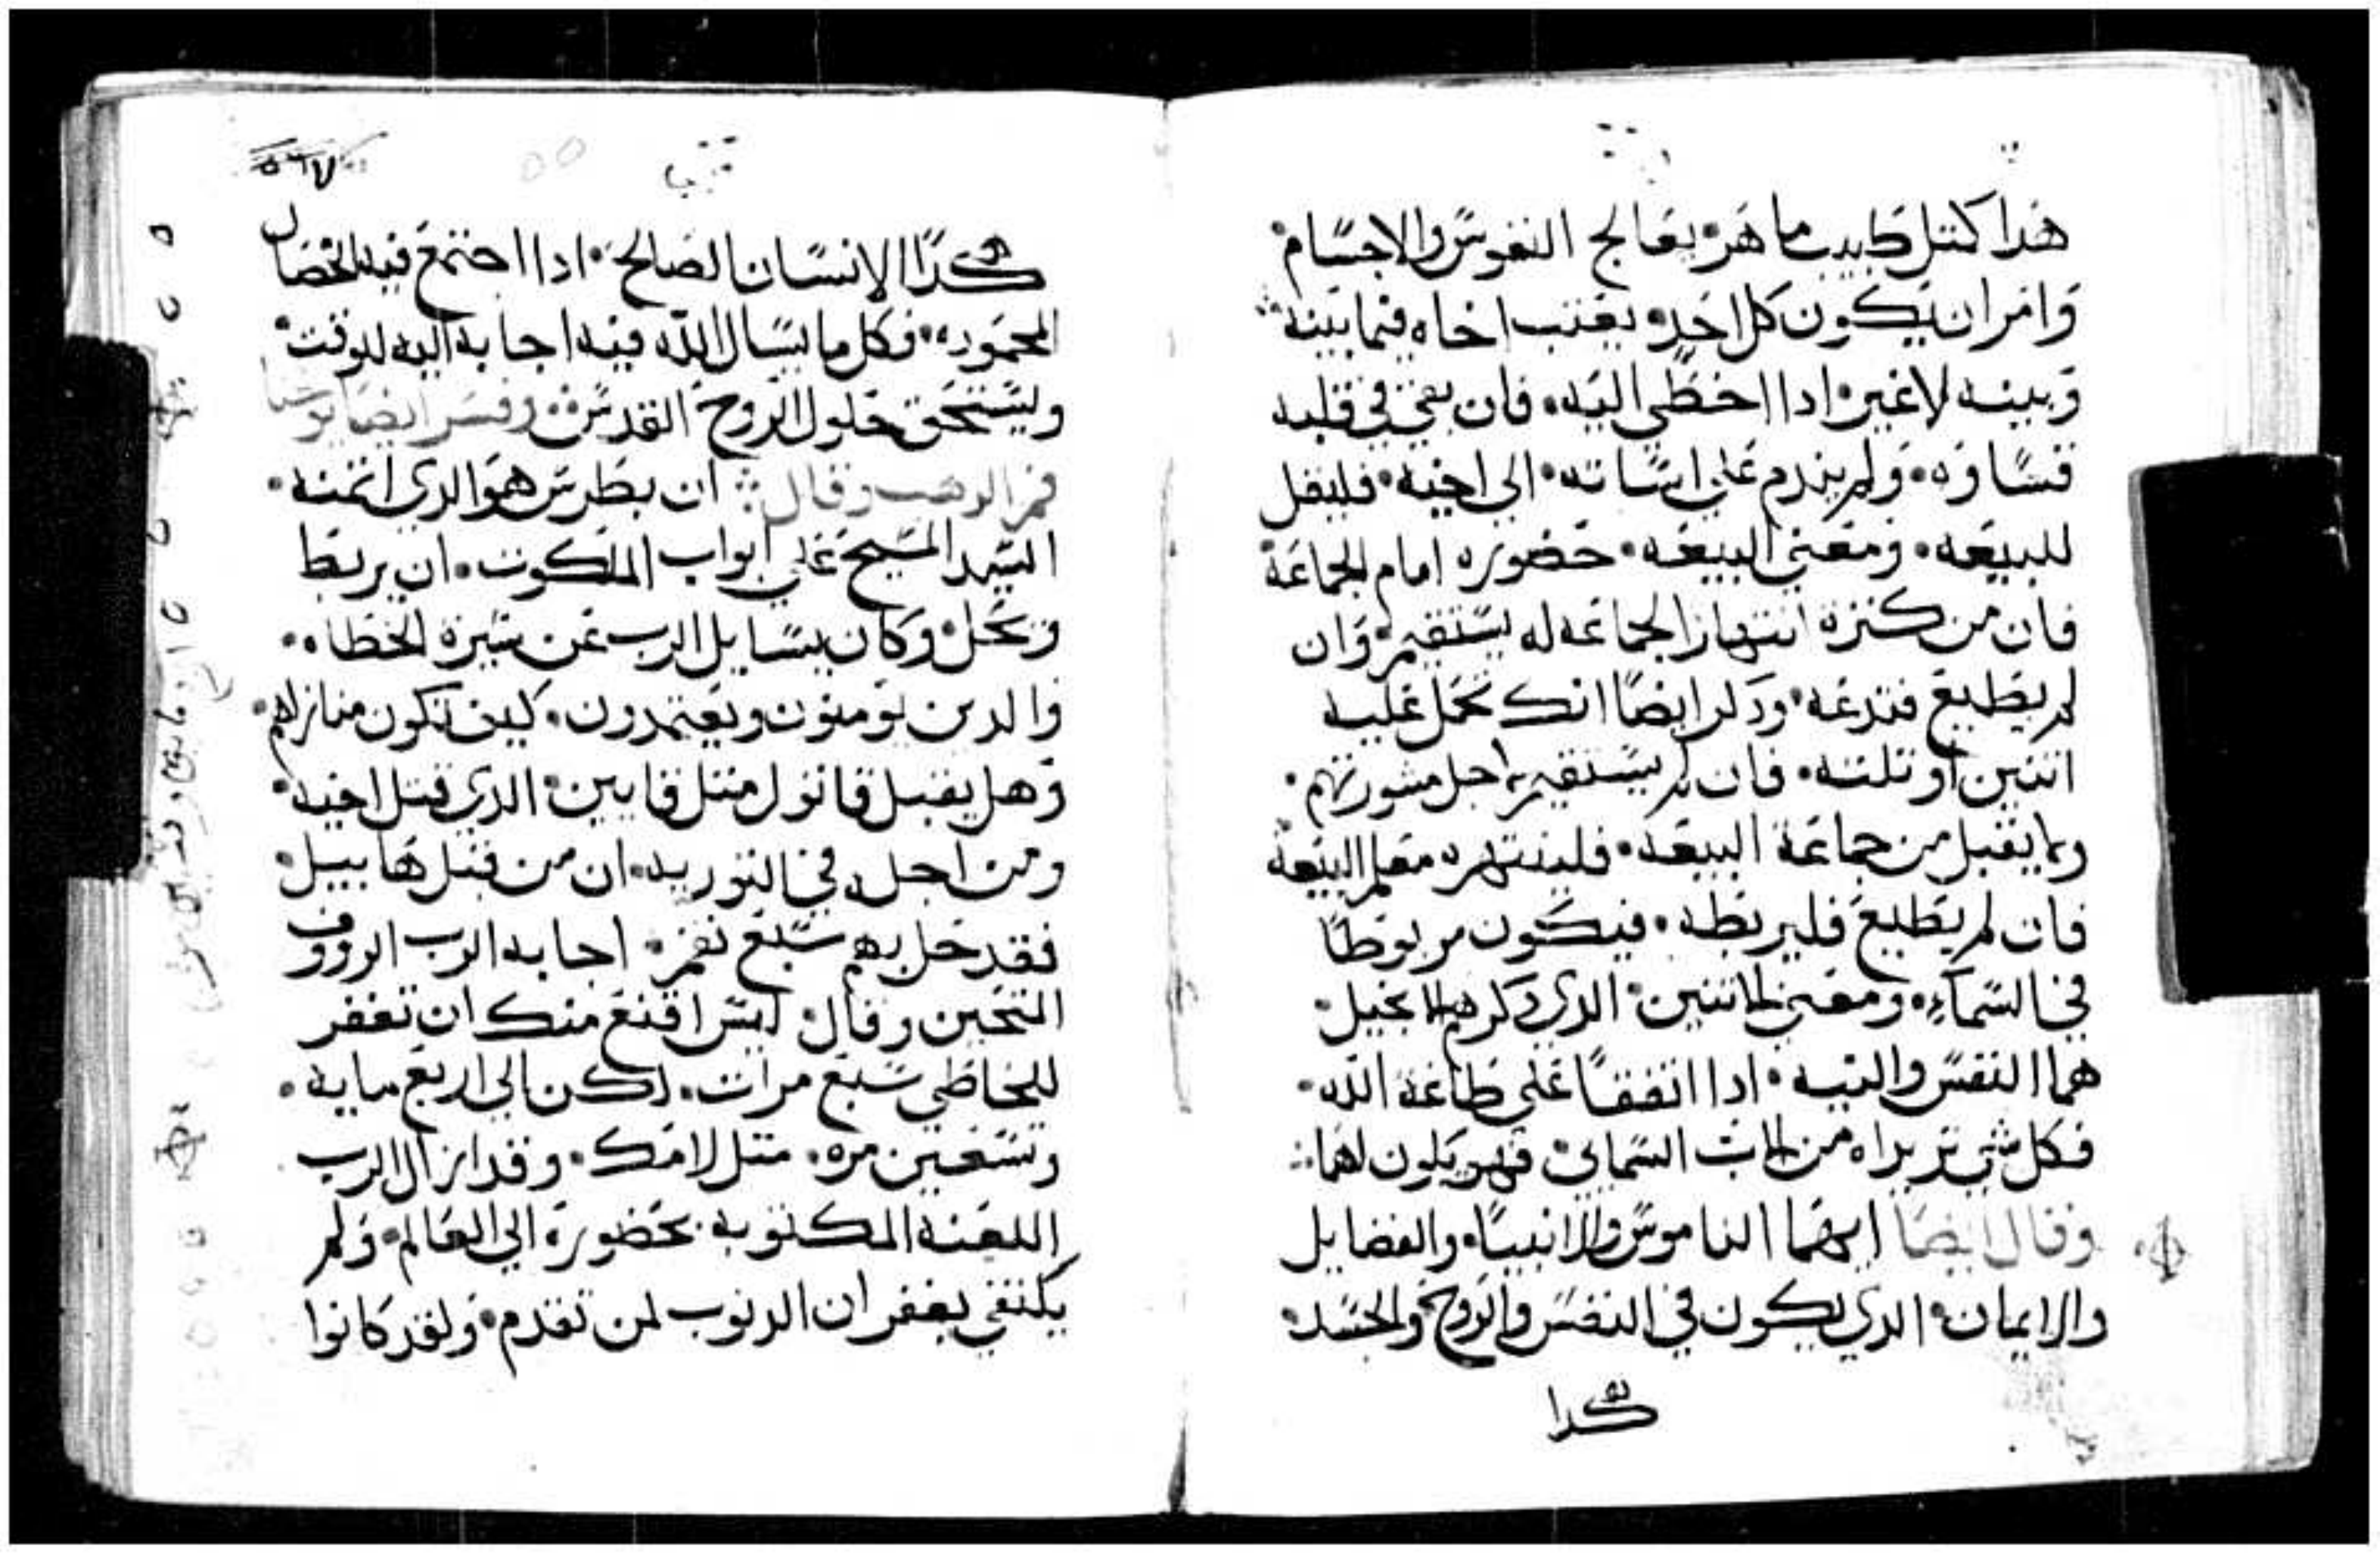 هدا كمثل طبيب ماهر يعالج النفوس والاجسام
وامر ان يكون كل احد يعتب اخاه فيما بينه
وبينه لا غير ادا اخطي اليه فان بقي في قلبه
قساوه ولم يندم علي اساته الي اخيه فليقل
للبيعه ومعني البيعه حضوره امام الجماعة
فان من كترة انتهار الجماعه له يستقيم وان
لم يطيع فتدعه ودكر ايضا انك تحمل عليه
اتنين او تلته فان لم يستقيم من اجل مشورتهم
وما يقبل من جماعة البيعه فلينتهره معلم البيعة
فان لم يطيع فليربطه فيكون مربوطا
في السماء ومعني الاتنين الدي دكرهم الانجيل
هما النفس والنيه ادا اتفقا علي طاعة الله
فكل شي تريداه من الاب السماي فهو يكون لهما
وقال ايضا انهما الناموس والانبيا والفضايل
والايمان الدي يكون في النفس والروح والجسد
هكدا
٥٥
هكدا الانسان الصالح ادا اجتمع فيه الخصال
المحموده فكل ما يسال الله فيه اجابه اليه للوقت
ويستحق حلول الروح القدس وفسر ايضا يوحنا
فم الدهب وقال ان بطرس هو الدي ائتمنه
السيد المسيح علي ابواب الملكوت ان يربط
ويحل وكان يسايل الرب عن سيرة الخطاه
والدين يومنون ويعتمدون كيف تكون منازلهم
وهل يقبل قاتول متل قايين الدي قتل اخيه
ومن اجله في التوريه ان من قتل هابيل
فقد حل بهم سبع نقم اجابه الرب الرووف
المتحنن وقال ليس اقنع منك ان تغفر
للخاطي سبع مرات لكن الي اربع مايه
وتسعين مره متل لامك وقد ازال الرب
اللعنه المكتوبه بحضوره الي العالم ولم
يكتفي بغفران الدنوب لمن تقدم ولقد كانوا